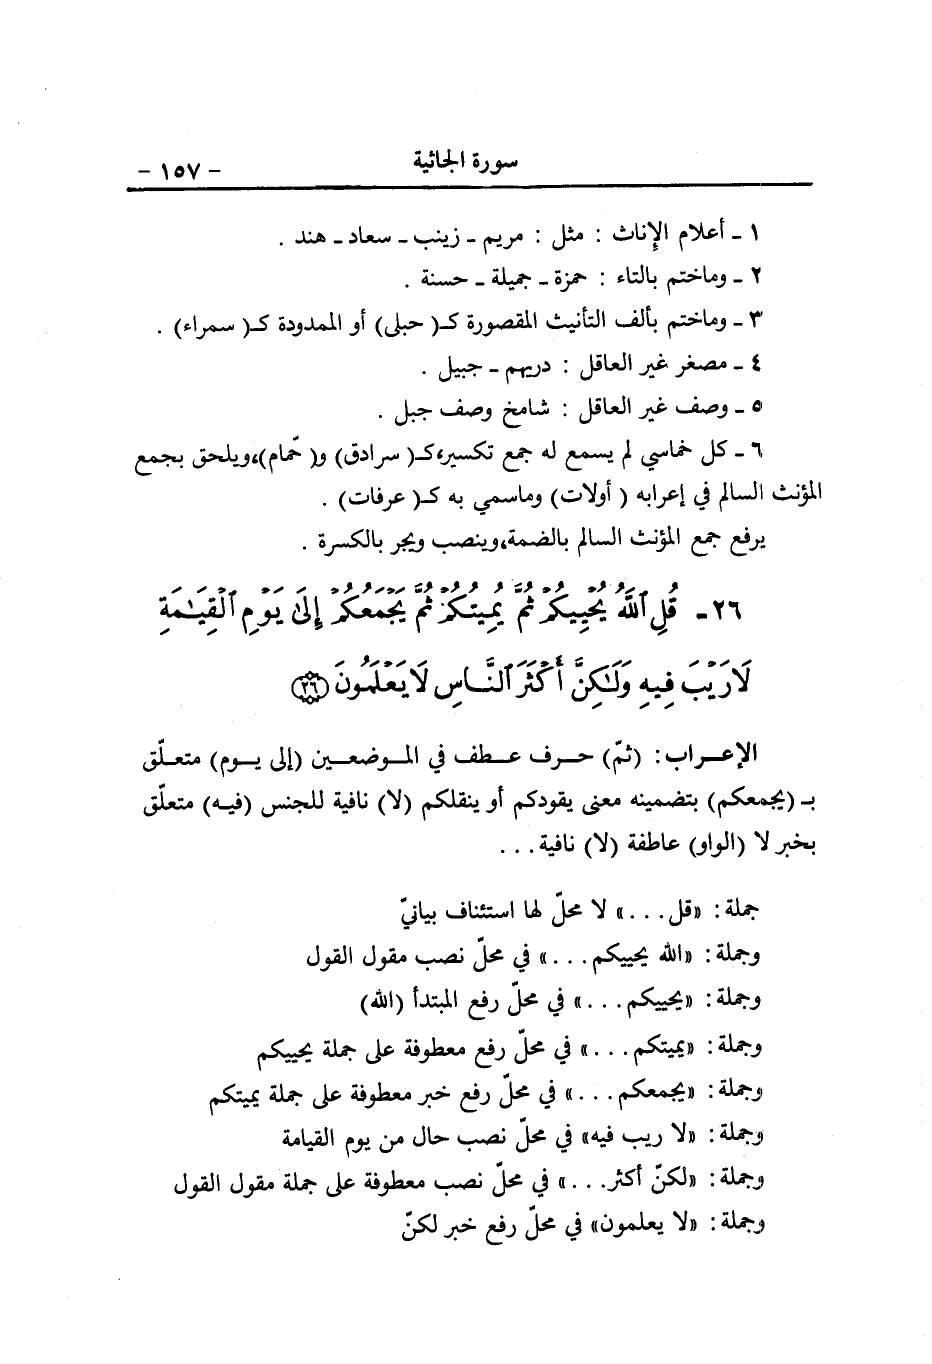 سورة الجاثية
- ١٥٧ -
١ - أعلام الإناث : مثل : مريم - زينب - سعاد - هند .
٢ - وماختم بالتاء : حمزة - جميلة - حسنة .
٣ - وماختم بألف التأنيث المقصورة كـ( حبلى) أو الممدودة كـ( سمراء) .
٤ - مصغر غير العاقل : دريهم - جبيل .
٥ - وصف غير العاقل : شامخ وصف جبل .
٦ - كل خماسي لم يسمع له جمع تكسير،كـ( سرادق) و( حمّام)،ويلحق بجمع
المؤنث السالم في إعرابه ( أولات) وماسمي به كـ( عرفات) .
يرفع جمع المؤنث السالم بالضمة،وينصب ويجر بالكسرة .
٢٦- قُلِ ٱللَّهُ يُحْيِيكُمْ ثُمَّ يُمِيتُكُمْ ثُمَّ يَجْمَعُكُمْ إِلَىٰ يَوْمِ ٱلْقِيَـٰمَةِ
لَا رَيْبَ فِيهِ وَلَـٰكِنَّ أَكْثَرَ ٱلنَّاسِ لَا يَعْلَمُونَ ٢٦
الإعـراب : (ثمّ) حـرف عـطف في المـوضعـين (إلى يـوم) متعـلّق
بـ (يجمعكم) بتضمينه معنى يقودكم أو ينقلكم (لا) نافية للجنس (فيه) متعلّق
بخبر لا (الواو) عاطفة (لا) نافية . . .
جملة : «قل . . . » لا محلّ لها استئناف بيانيّ
وجملة : «الله يحييكم . . . » في محلّ نصب مقول القول
وجملة : «يحييكم . . . » في محلّ رفع المبتدأ (الله)
وجملة : «يميتكم . . . » في محلّ رفع معطوفة على جملة يحييكم
وجملة : «يجمعكم . . . » في محلّ رفع خبر معطوفة على جملة يميتكم
وجملة : «لا ريب فيه» في محلّ نصب حال من يوم القيامة
وجملة : «لكنّ أكثر . . . » في محلّ نصب معطوفة على جملة مقول القول
وجملة : «لا يعلمون» في محلّ رفع خبر لكنّ